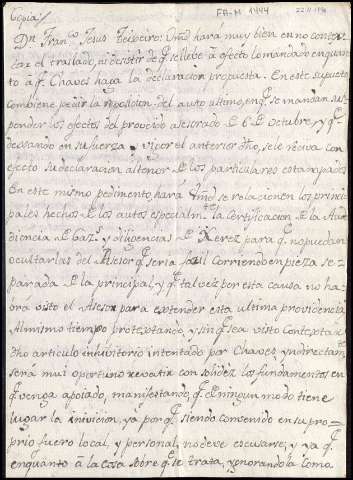 FA-M 1444
Copia
Dn Franco Jesus Teixeiro: Vmd hará muy bien en no contes-
tar el traslado, ni desistir de qe se lleve á efecto lo mandado en quan-
to á qe Chaves haga la declaracion propuesta. En este supuesto
combiene pedir la reposicion del auto ultimo, en qe se mandan sus-
pender los efectos del proveido asesorado de 6 de Octubre, y qe
dexando en su fuerza y vigor el anterior dho, se le reciva con
efecto su declaracion al tenor de los particulares estampados
En este mismo pedimento, hará Vmd se relacionen los princi-
pales hechos de los autos especialmte la certificacion de la Au-
diencia de y diligencias de Xerez para qe no puedan
ocultarlas del Asesor qe seria facil corriendo en pieza se-
parada de la principal, y qe tal vez por esta causa no ha-
brá visto el Asesor para extender esta ultima providencia
Al mismo tiempo protextando, y sin qe sea visto contextar
dho articulo inivitorio intentado por Chaves indirectamte
será mui oportuno revatir con solidez los fundamentos en
qe venga apoiado, manifestando, qe de ningun modo tiene
lugar la inivicion, yá por qe siendo convenido en su pro-
prio fuero local, y personal no deve escusarse; y ya qe
en quanto á la cosa sobre qe se trata, ygnorando la toma